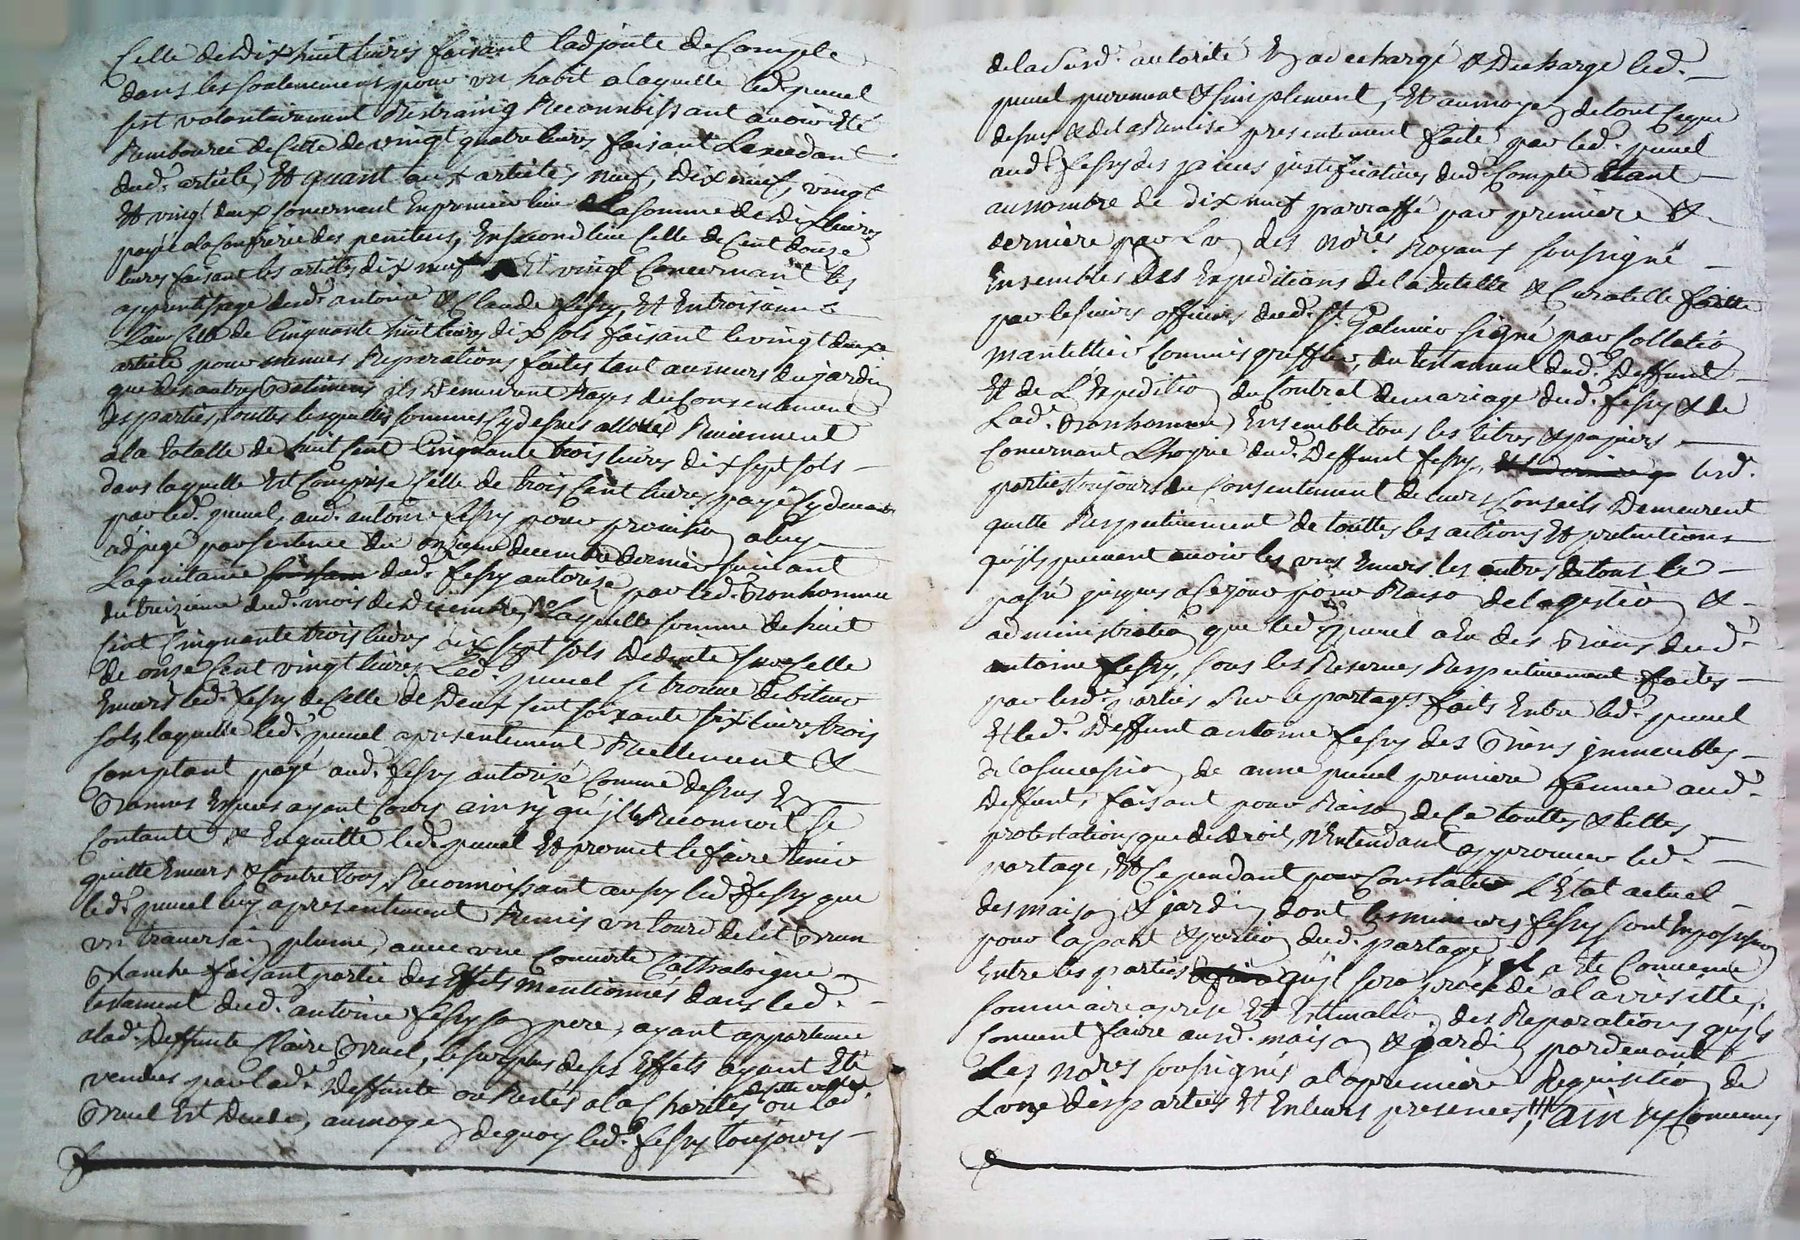 Celle de dix huit livres faisant ladjoute de Compte
dans les soulemens pour un habit a laquelle led. punel
sest volontairement Restraing Reconnoissant avoir Eté
Rembourcé de Cette de vingt quatre livres faisant Lexcedant
dud. article, Et quant aux articles neuf, dix neuf, vingt
Et vingt deux concernant En premier lieu la somme de dix livres
payée a la Confrerie des penitens, En second lieu Celle de Cent douze
livres faisant les articles dix neuf Et vingt Concernant les
apprentissage dud. antoine & Claude fessy, Et En troisieme
Lieu Celle de Cinquante huit livres dix sols faisant le vingt deuxe
article pour menues Reparations faites tant au murs du jardin
que des autres Batimens ils Demeurent Rayes du Consentement
des parties, touttes lesquelles sommes Cy dessus alloues Reviennent
a la totalle de huit Cent Cinquante trois livres dix sept sols
dans laquelle Est Comprise Celle de trois Cent livres payé Cy devant
par led. punel, aud. antoine fessy pour provision a luy
adjugé par sentence du onzieme decembre dernier suivant
La quitance dud. fessy autorizé par led. Bonhomme
du treizieme dud. mois de Decembre, Laquelle somme de huit
Cent Cinquante trois livres dix sept sols Deduite sur Celle
de onze Cent vingt livres Led. punel se trouve debiteur
Envers led. fessy de Celle de Deux Cent soixante six livres trois
sols, laquelle led. punel a presentement Reellement &
Comptant payé aud. fessy autorizé Comme dessus En
Bonnes Especes ayant Cours ainsy qu'il le Reconnoit se
Contante & En quitte led. punel Et promet le faire tenir
quitte Envers & Contre tous, Reconnoissant aussy led. fessy que
led. punel luy a presentement Remis un tour de lit Brun
un traversain plume, avec une Couverte Cathaloigne
Blanche faisant partie des Effets mentionnés dans led.
testament dud. antoine fessy son pere, ayant appartenue
a lad. Deffunte Claire Bruel, le surplus de ses Effets ayant Eté
vendus par lad. Deffunte ou Restés a la Charité de cette ville ou lad.
Bruel Est Decedé, au moyen de quoy led. fessy toujours
de la susd. autorité En a decchargé & Decharge led.
punel purement & simplement, Et au moyen de tout Ce que
dessus & de la Remise presentement faite par led. punel
aud. fessy des pieces justificatives dud. Compte Etant
au nombre de dix neuf parraffé par premiere &
derniere par L'un des nores Royaux soussigné
Ensembles des Expeditions de la tutelle & Curatelle faitte
par les sieurs officiers dud. St. Galmier signé par Collation
mantellier Commis greffier, du testament dud. Deffunt
Et de L'Expedition du Contrat de mariage dud. fessy & de
Lad. Bonhomme, Ensemble tous les titres & papiers
Concernant L'hoyrie dud. Deffunt fessy, lesd.
parties toujours du Consentement de leurs Conseils Demeurent
quitte Respectivement de touttes les actions Et pretentions
qu'ils peuvent avoir les uns Envers les autres de tout le
passé jusques a Ce jour pour Raison de la gestion &
administration que led. punel a Eu des Biens dud.
antoine fessy, sous les Reserves Respectivement faites
par lesd. parties sur le partage fait Entre led. punel
Et led. Deffunt antoine fessy des Biens immeubles
de la succession de anne punel premiere femme aud.
Deffunt, faisant pour Raison de Ce touttes & telles
protestations que de Droit, N'Entendant approuver led.
partage, Et Cependant pour Constater L'Etat actuel
des maison & jardin dont les mineurs fessy sont En possession
pour la part & portion dud. partage, il a Eté Convenu
Entre les parties qu'il sera procedé a la visitte,
sommaire aprise Et Estimation des Reparations qu'ils
Convient faire ausd. maison & jardin pardevant
Les nores soussignés a la premiere Requisition de
L'une des parties Et En leurs presences, ainsy Convenu